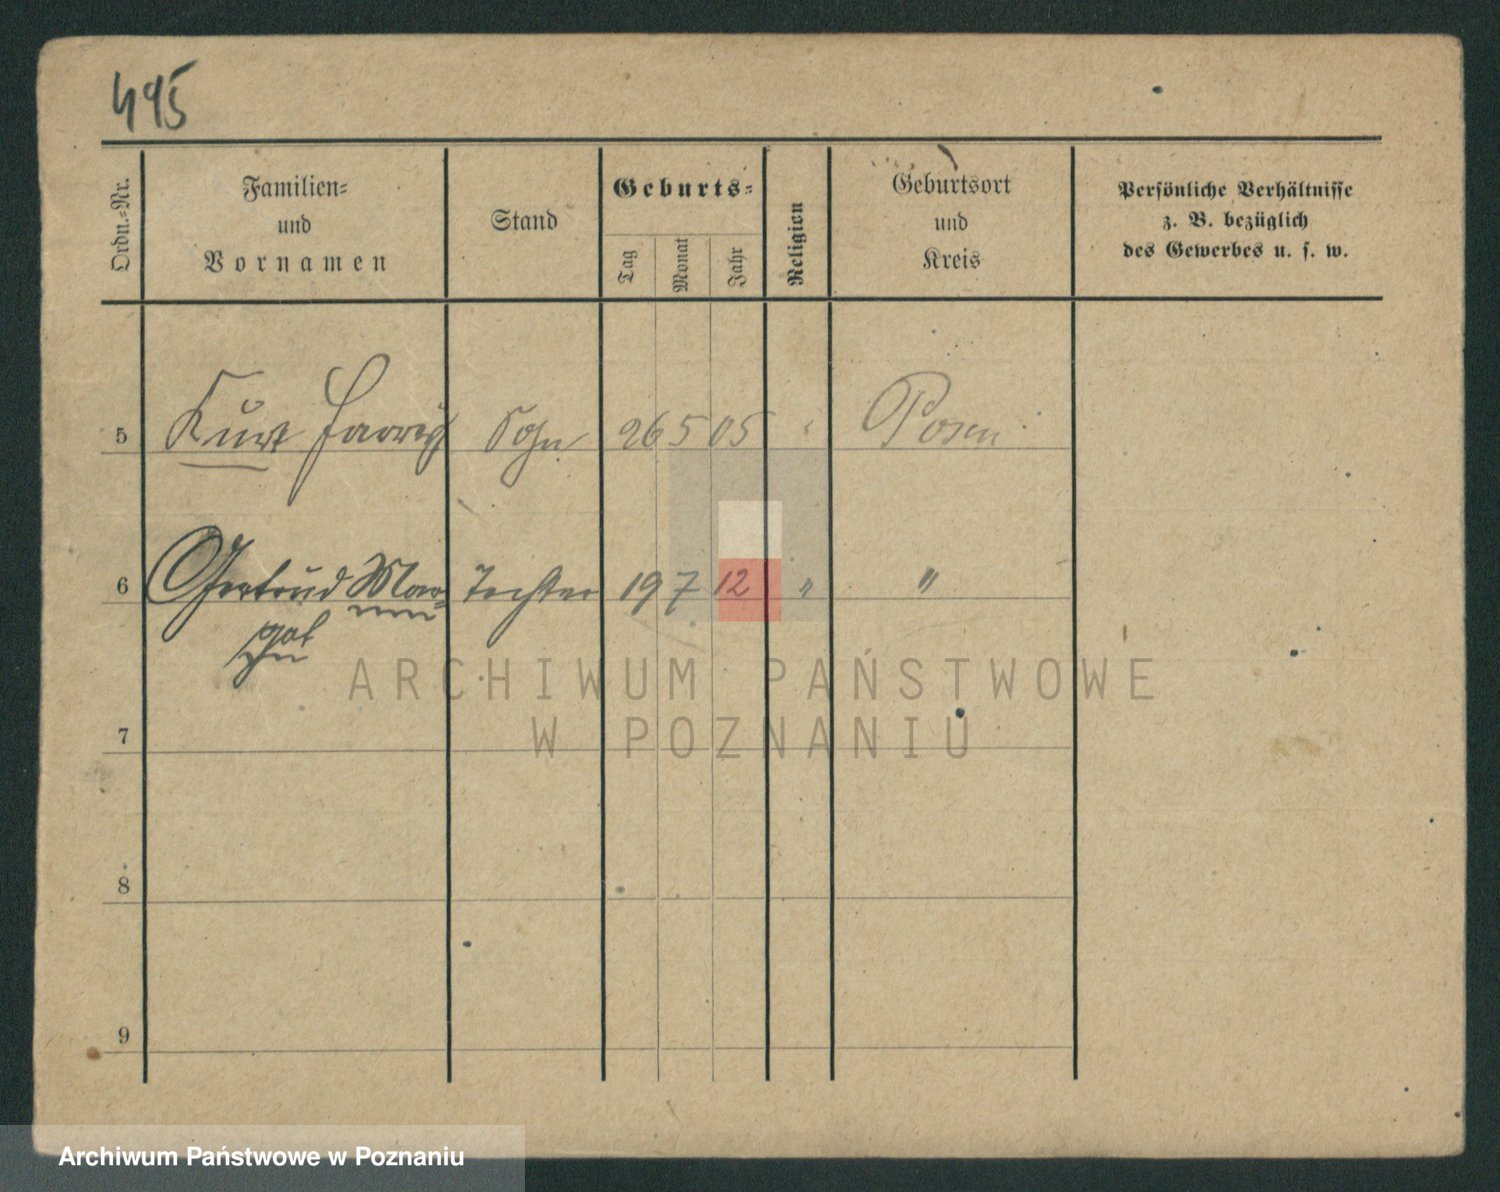 495
Ordn.-Nr.
Familien-
und
Vornamen
Stand
Geburts-
Tag
Monat
Jahr
Religion
Geburtsort
und
Kreis
Persönliche Verhältnisse
z. B. bezüglich
des Gewerbes u. s. w.
5 Kurt Sohn 26 5 05 Posen
6 Gertrud Mar- Tochter 19 7 12 " "
7
8
9
ARCHIWUM PAŃSTWOWE
W POZNANIU
Archiwum Państwowe w Poznaniu